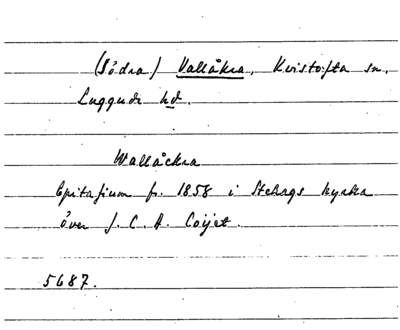 (Södra) Vallåkra, Kvistofta sn,
Luggude hd.
Wallåckra
Epitafium fr. 1858 i Stehags kyrka
över J. C. A. Coijet.
5687.